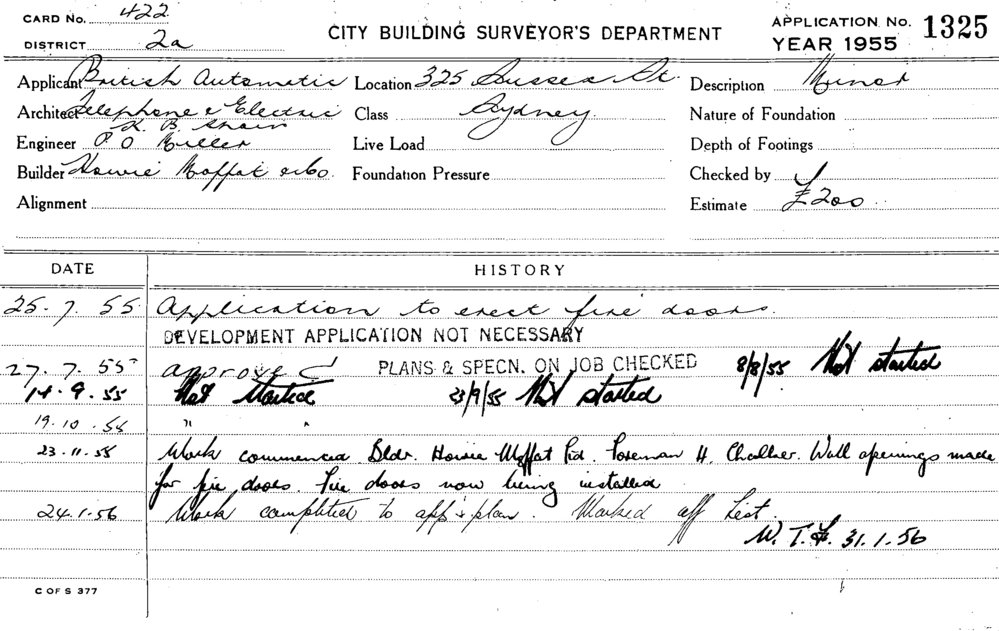 CARD No. 422
DISTRICT 2a
CITY BUILDING SURVEYOR'S DEPARTMENT
APPLICATION No. 1325
YEAR 1955
Applicant British Automatic Location 325 Sussex St. Description Minor
Architect Telephone & Electric Class Sydney Nature of Foundation
Engineer P O Miller Live Load Depth of Footings
Builder Howie Moffat & Co. Foundation Pressure Checked by
Alignment Estimate £200
DATE HISTORY
25.7.55 Application to erect fire doors.
DEVELOPMENT APPLICATION NOT NECESSARY
27.7.55 Approved PLANS & SPECN. ON JOB CHECKED 8/8/55 Not started
14.9.55 Not started 23/9/55 Not started
19.10.55 " "
23.11.55 Work commenced Bldr. Howie Moffat Foreman H. Wall openings made
for fire doors. Fire doors now being installed
24.1.56 Work completed to app'd plan. Marked off List.
31.1.56
C OF S 377